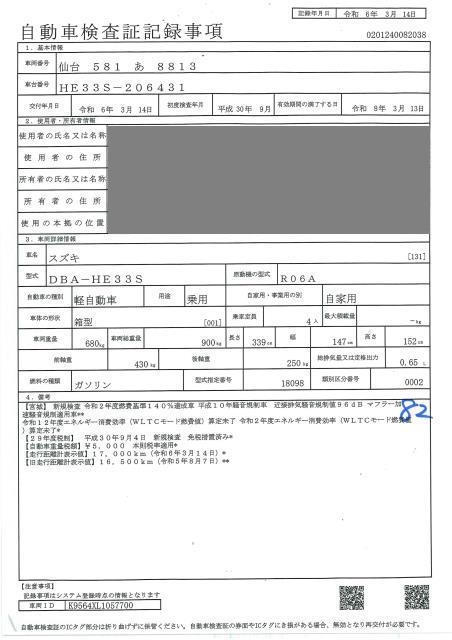 記録年月日 令和 6年 3月 14日
自動車検査証記録事項
0201240082038
1. 基本情報
車両番号 仙台 581 あ 8813
車台番号 HE33S-206431
交付年月日 令和 6年 3月 14日 初度検査年月 平成 30年 9月 有効期間の満了する日 令和 8年 3月 13日
2. 使用者・所有者情報
使用者の氏名又は名称
使用者の住所
所有者の氏名又は名称
所有者の住所
使用の本拠の位置
3. 車両詳細情報
車名 スズキ [131]
型式 DBA-HE33S 原動機の型式 R06A
自動車の種別 軽自動車 用途 乗用 自家用・事業用の別 自家用
車体の形状 箱型 [001] 乗車定員 4人 最大積載量 -kg
車両重量 680kg 車両総重量 900kg 長さ 339cm 幅 147cm 高さ 152cm
前軸重 430kg 後軸重 250kg 総排気量又は定格出力 0.65 L
燃料の種類 ガソリン 型式指定番号 18098 類別区分番号 0002
4. 備考
【宮城】 新規検査 令和2年度燃費基準140%達成車 平成10年騒音規制車 近接排気騒音規制値96dB マフラー加
速騒音規制適用車**
82
令和12年度エネルギー消費効率(WLTCモード燃費値)算定未了 令和2年度エネルギー消費効率(WLTCモード燃費値
)算定未了*
【29年度税制】 平成30年9月4日 新規検査 免税措置済み*
【自動車重量税額】¥5,000 本則税率適用*
【走行距離計表示値】17,000km(令和6年3月14日)*
【旧走行距離計表示値】16,500km(令和5年8月7日)**
【注意事項】
記録事項はシステム登録時点の情報となります
車両ID K9564XL1057700
自動車検査証のICタグ部分は折り曲げずに保管ください。自動車検査証の券面やICタグに損がある場合、無効となり再交付が必要です。